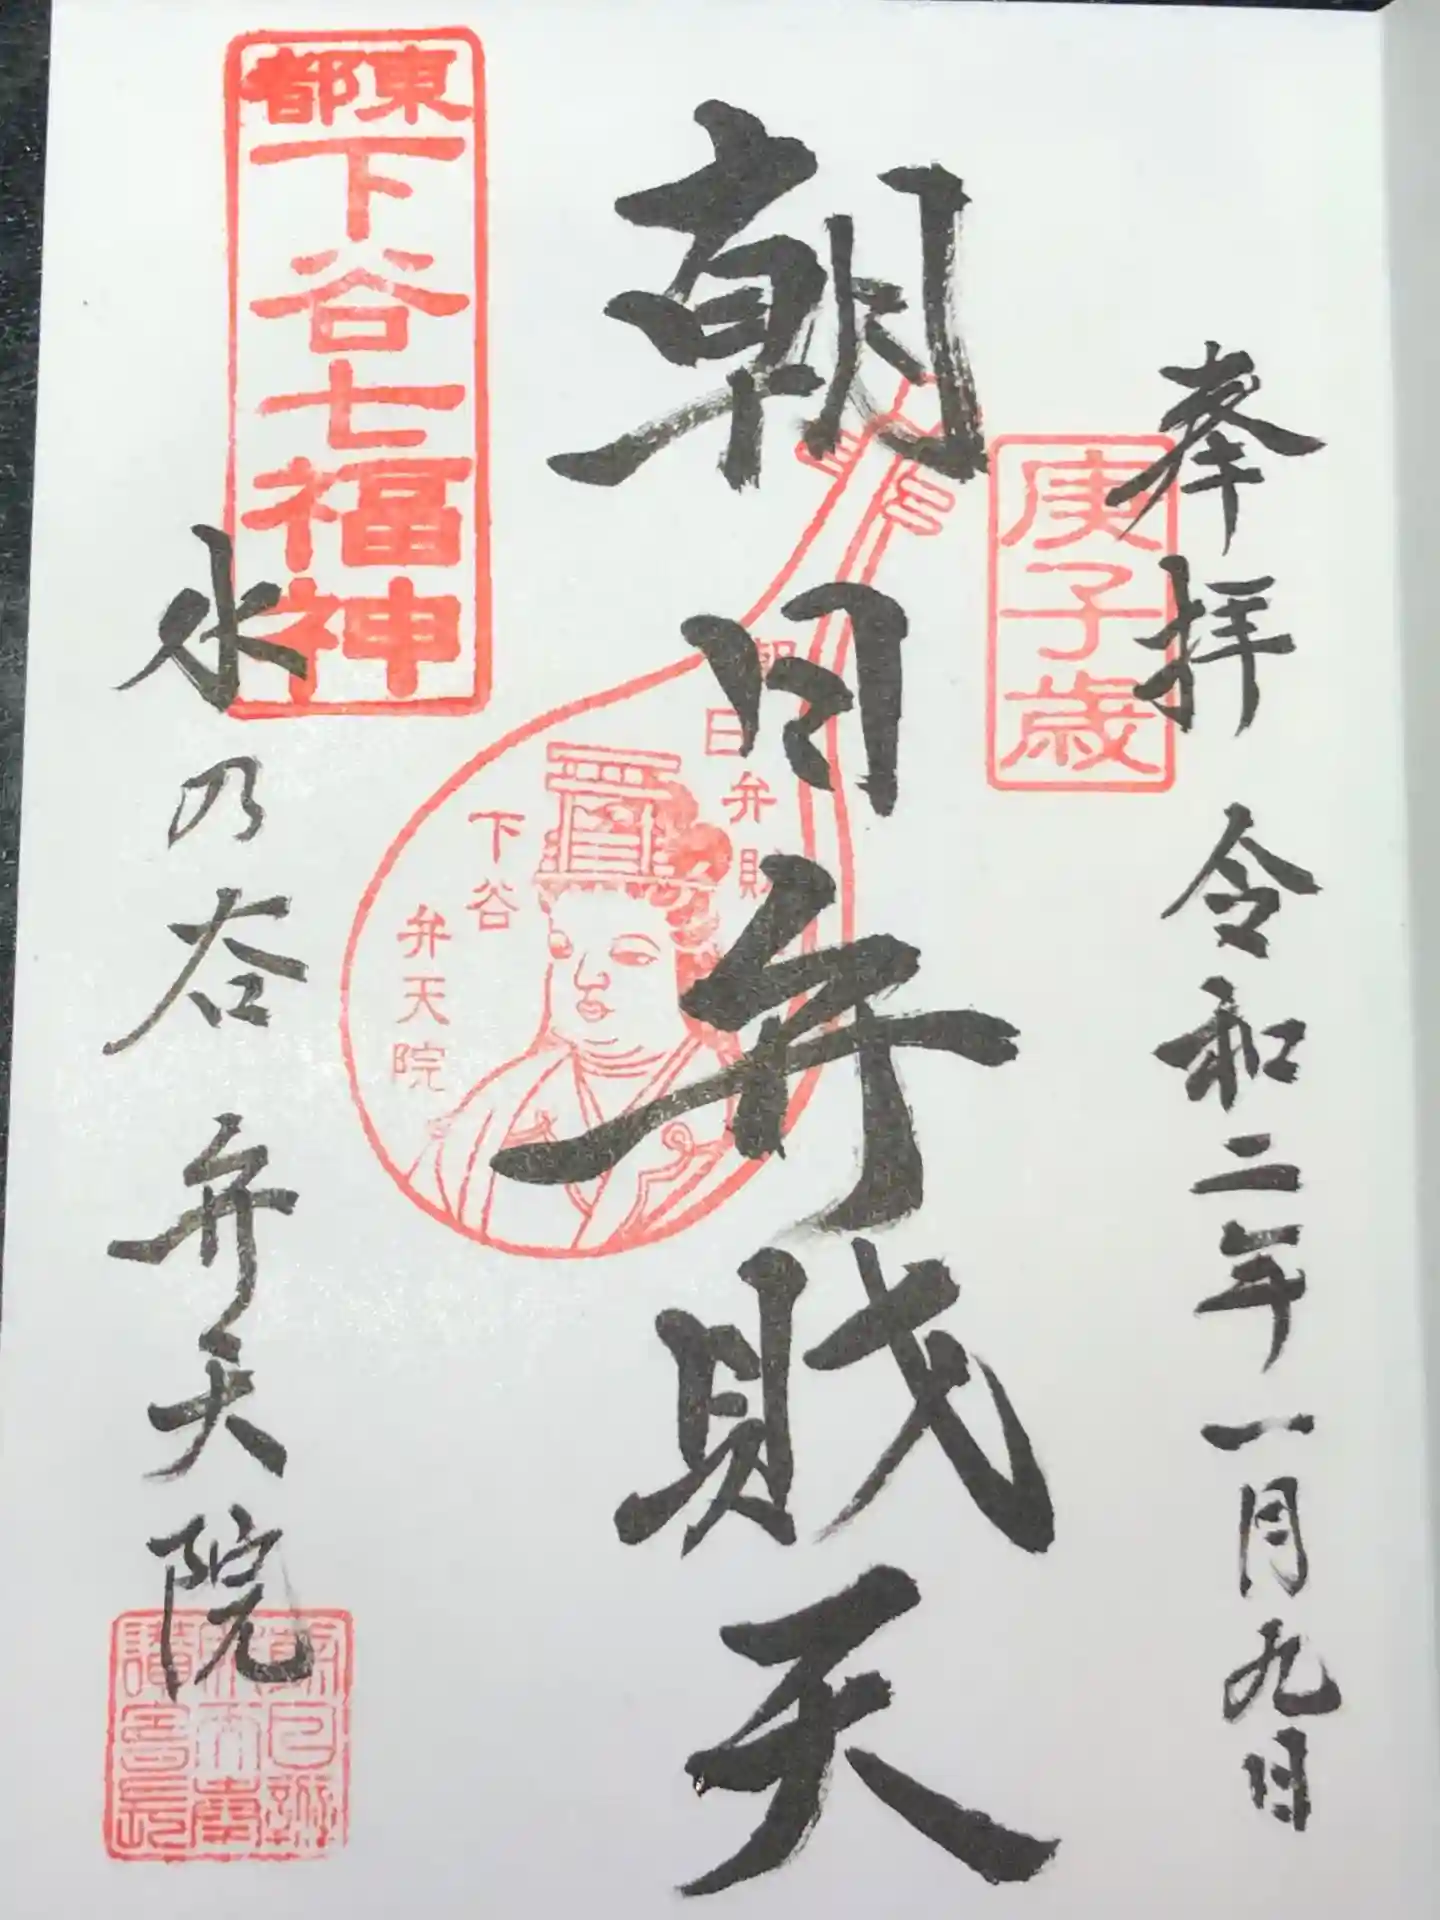 奉拝 令和二年一月九日
庚子歳
朝日弁財天
朝日弁財
下谷
弁天院
東都
下谷七福神
水の谷 弁天院